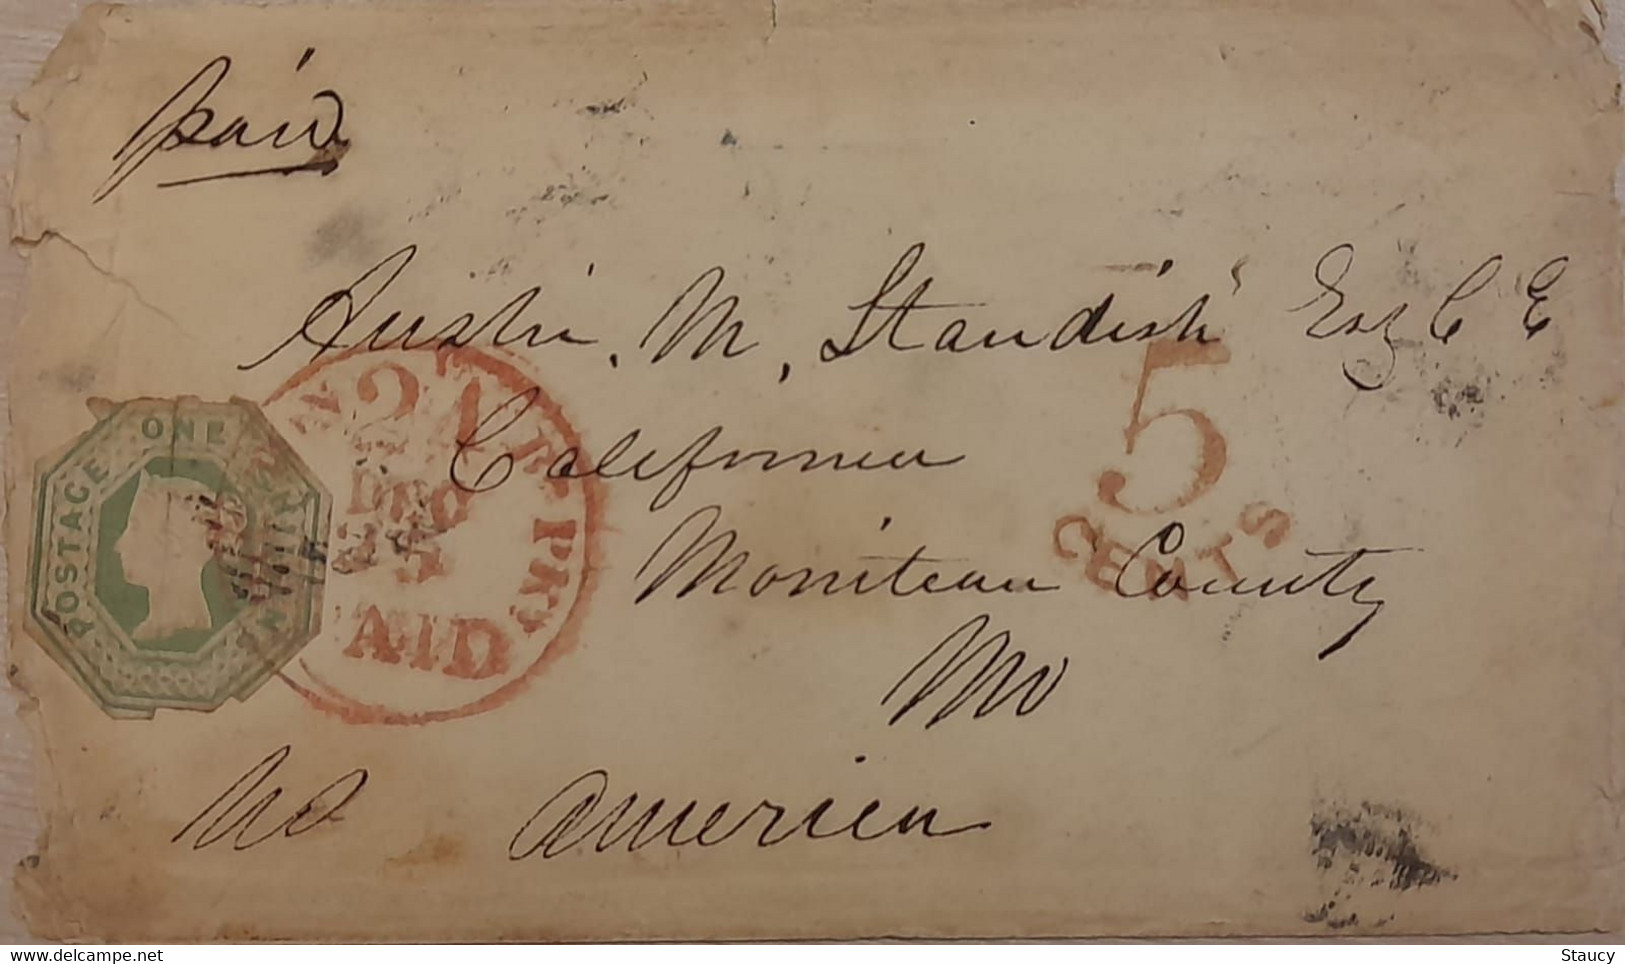 paid
Austin. M. Standish Esq C E
California
Moniteau County
Mo
America
POSTAGE ONE SHILLING
24
DEC
AM. PKT.
PAID
5
CENTS
Staucy